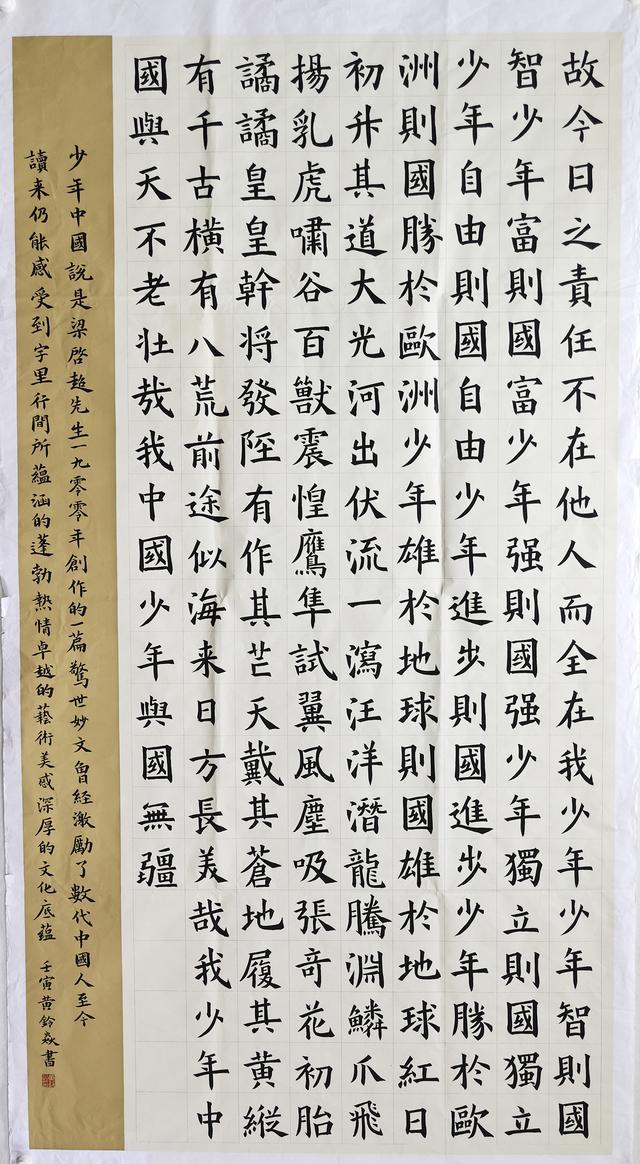 故今日之責任不在他人而全在我少年少年智則國
智少年富則國富少年强則國强少年獨立則國獨立
少年自由則國自由少年進步則國進步少年勝於歐
洲則國勝於歐洲少年雄於地球則國雄於地球紅日
初升其道大光河出伏流一瀉汪洋潛龍騰淵鱗爪飛
揚乳虎嘯谷百獸震惶鷹隼試翼風塵吸張奇花初胎
譎譎皇皇幹將發陘有作其芒天戴其蒼地履其黄縱
有千古横有八荒前途似海来日方長美哉我少年中
國與天不老壯哉我中國少年與國無疆
少年中國説是梁啓超先生一九零零年創作的一篇驚世妙文曾經激勵了數代中國人至今
讀来仍能感受到字里行間所藴涵的蓬勃熱情卓越的藝術美感深厚的文化底藴 壬寅黄鈴焱書